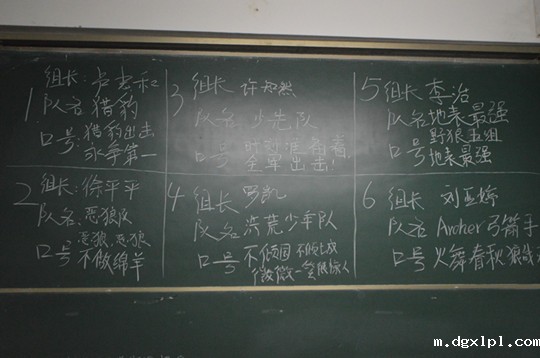 1 组长:卢志和
队名 猎豹
口号:猎豹出击
永争第一
2 组长:徐平平
队名:恶狼队
恶狼,恶狼
口号 不做绵羊
3 组长 许知然
队名 少先队
口号 时刻准备着
全军出击!
4 组长 罗凯
队名 洪荒少年队
口号 不倾国 不倾城
微微一笑很惊人
5 组长 李治
队名 地表最强
野狼五组
口号 地表最强
6 组长 刘亚婷
队名 Archer 弓箭手
口号 火舞春秋 狼
m.dgxlpl.com